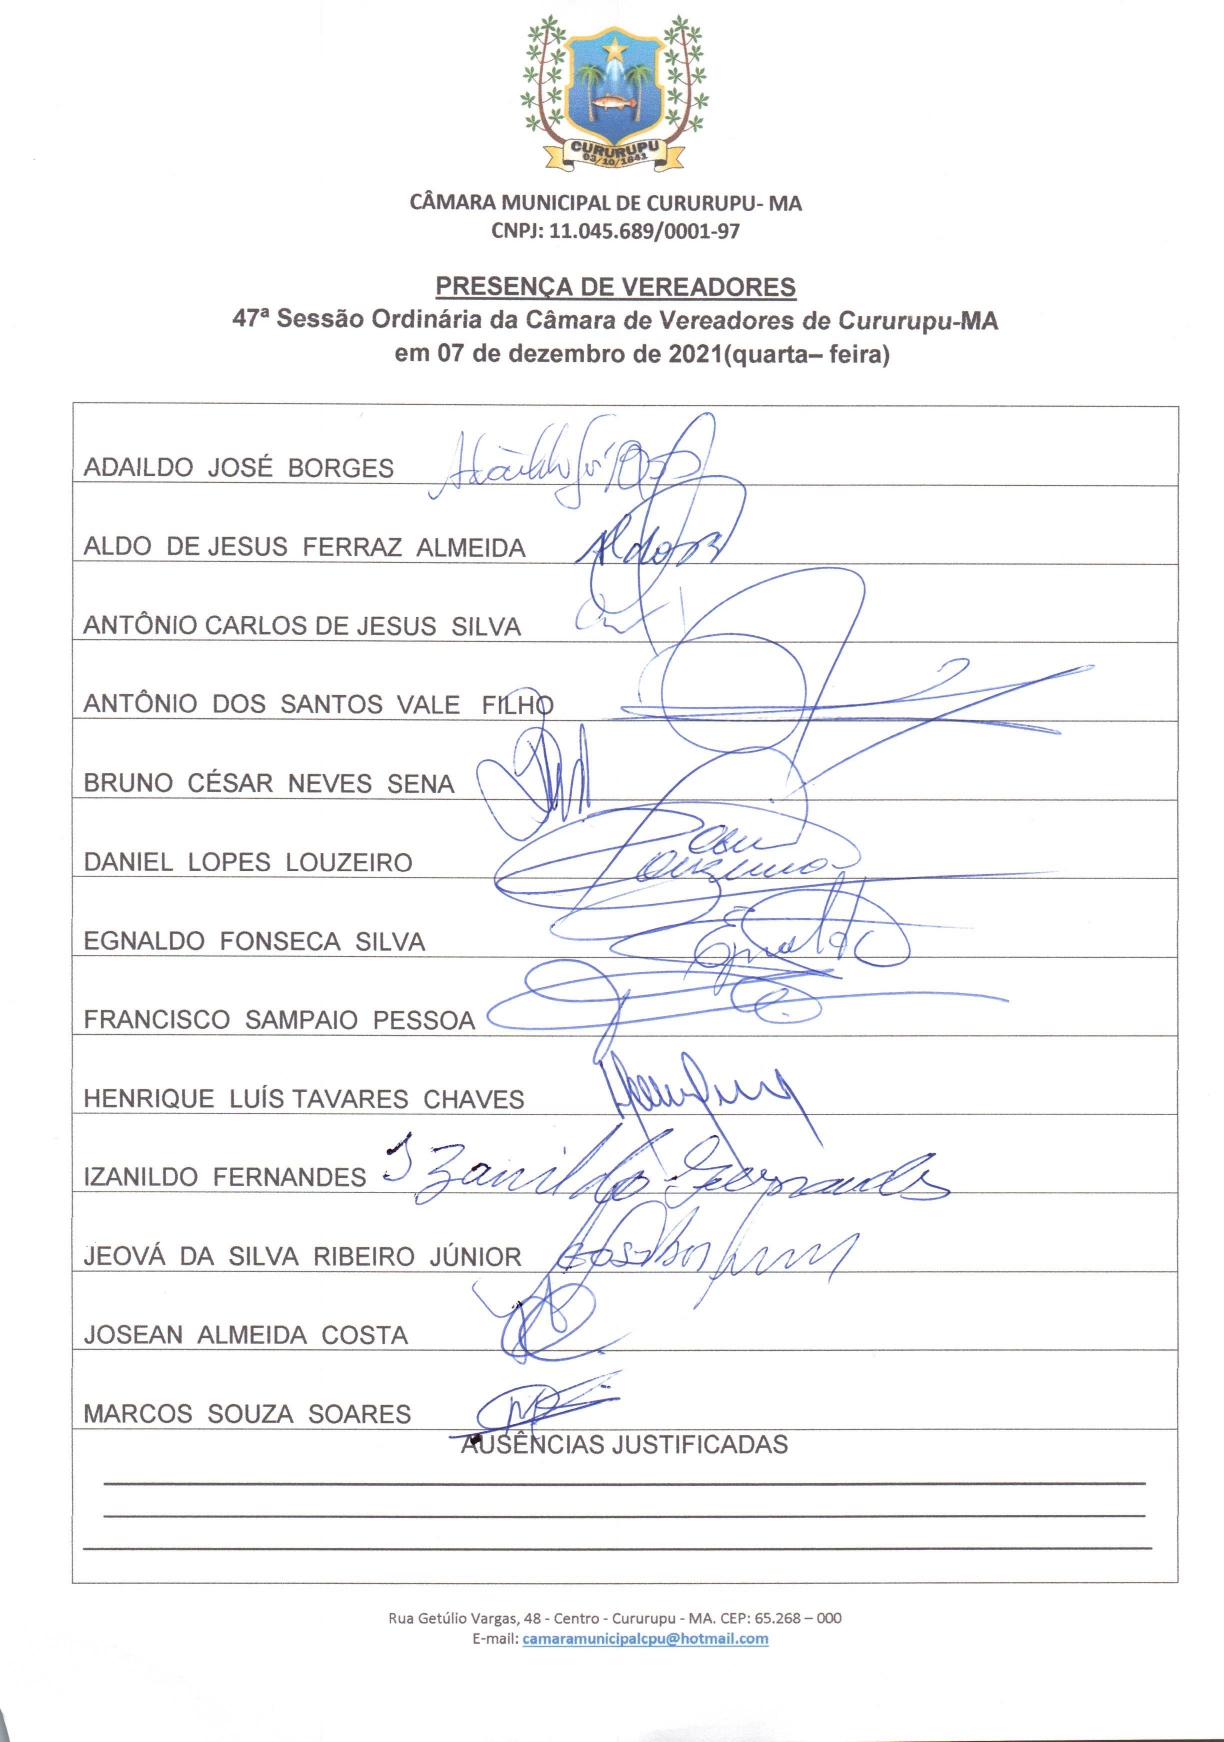 CURURUPU
03/10/1841
CÂMARA MUNICIPAL DE CURURUPU- MA
CNPJ: 11.045.689/0001-97
PRESENÇA DE VEREADORES
47ª Sessão Ordinária da Câmara de Vereadores de Cururupu-MA
em 07 de dezembro de 2021(quarta– feira)
ADAILDO JOSÉ BORGES
ALDO DE JESUS FERRAZ ALMEIDA
ANTÔNIO CARLOS DE JESUS SILVA
ANTÔNIO DOS SANTOS VALE FILHO
BRUNO CÉSAR NEVES SENA
DANIEL LOPES LOUZEIRO
EGNALDO FONSECA SILVA
FRANCISCO SAMPAIO PESSOA
HENRIQUE LUÍS TAVARES CHAVES
IZANILDO FERNANDES Izanildo Fernandes
JEOVÁ DA SILVA RIBEIRO JÚNIOR
JOSEAN ALMEIDA COSTA
MARCOS SOUZA SOARES
AUSÊNCIAS JUSTIFICADAS
Rua Getúlio Vargas, 48 - Centro - Cururupu - MA. CEP: 65.268 – 000
E-mail: camaramunicipalcpu@hotmail.com